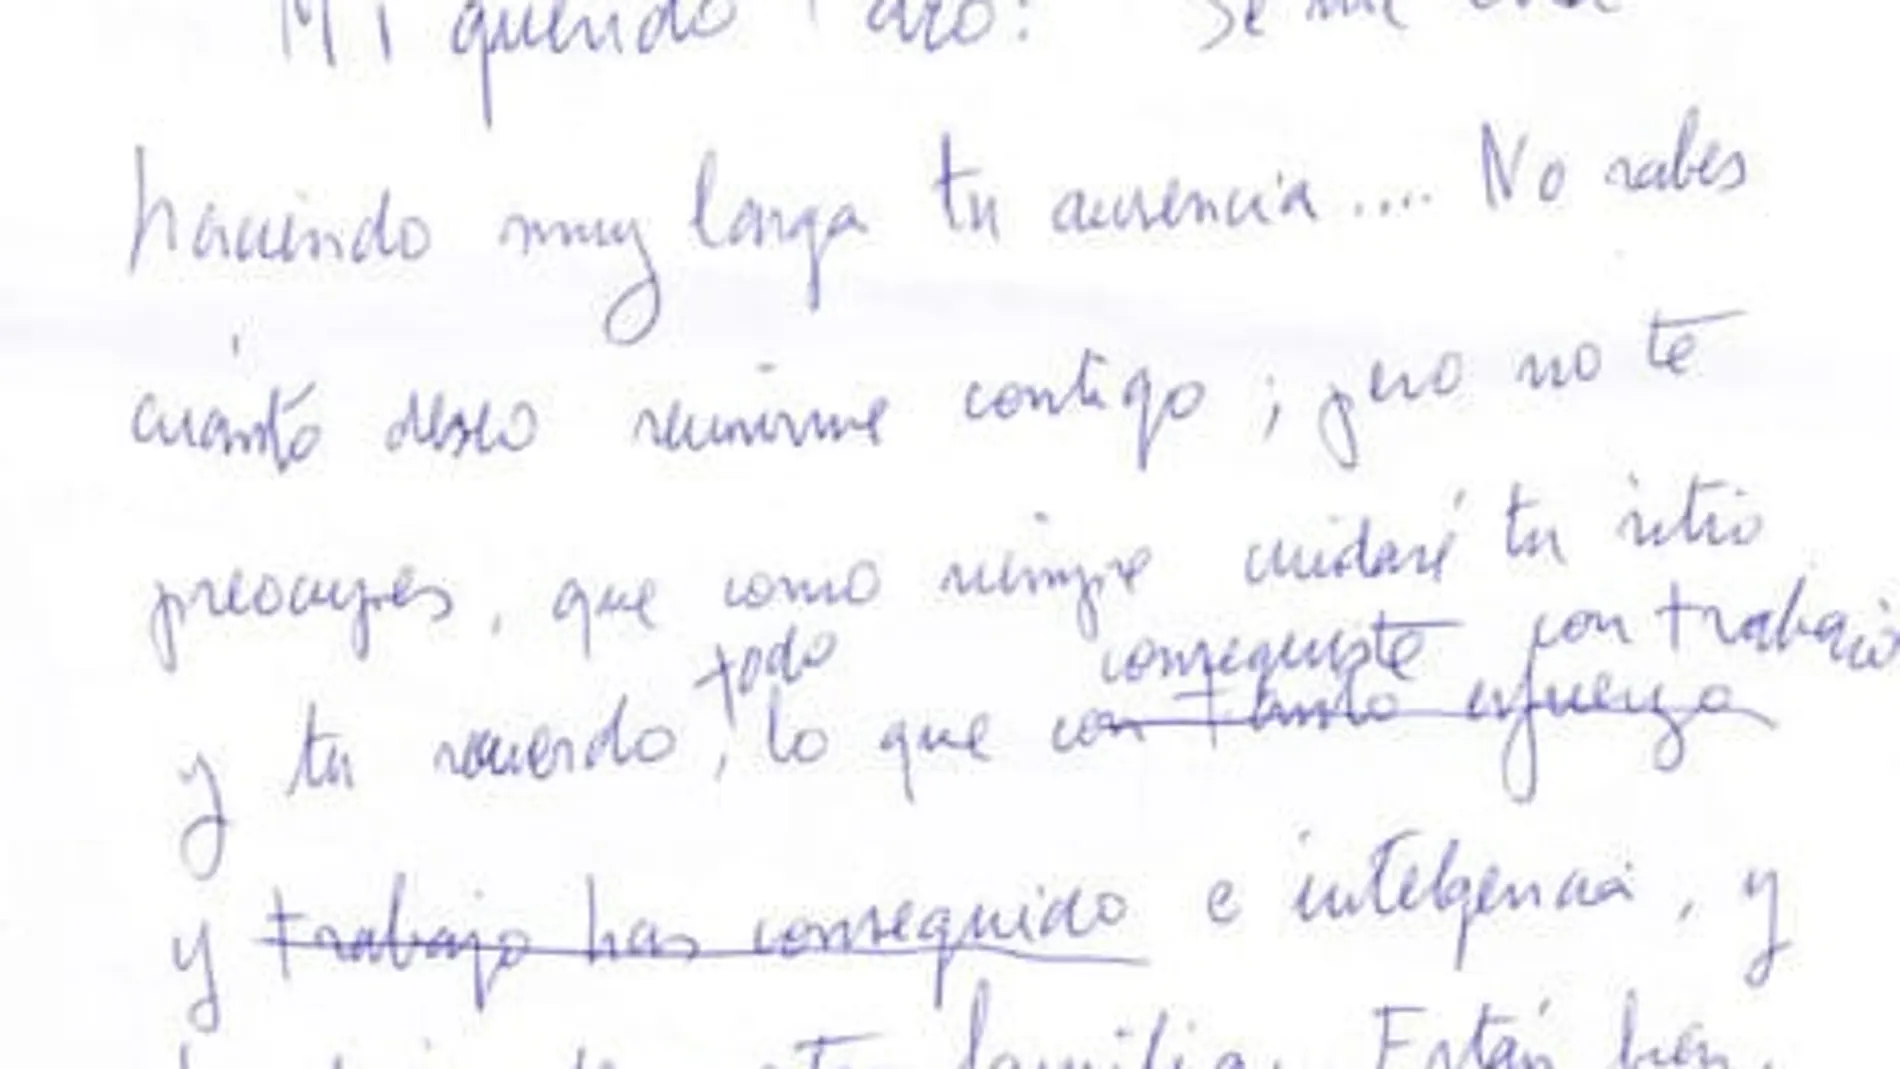 Mi querido Paco: Se me está
haciendo muy larga tu ausencia.... No sabes
cuánto deseo reunirme contigo; pero no te
preocupes, que como siempre cuidaré tu sitio
todo consequiste con trabajo
y tu recuerdo, lo que con tanto esfuerzo
y trabajo has conseguido e inteligencia, y
familia. Están bien,